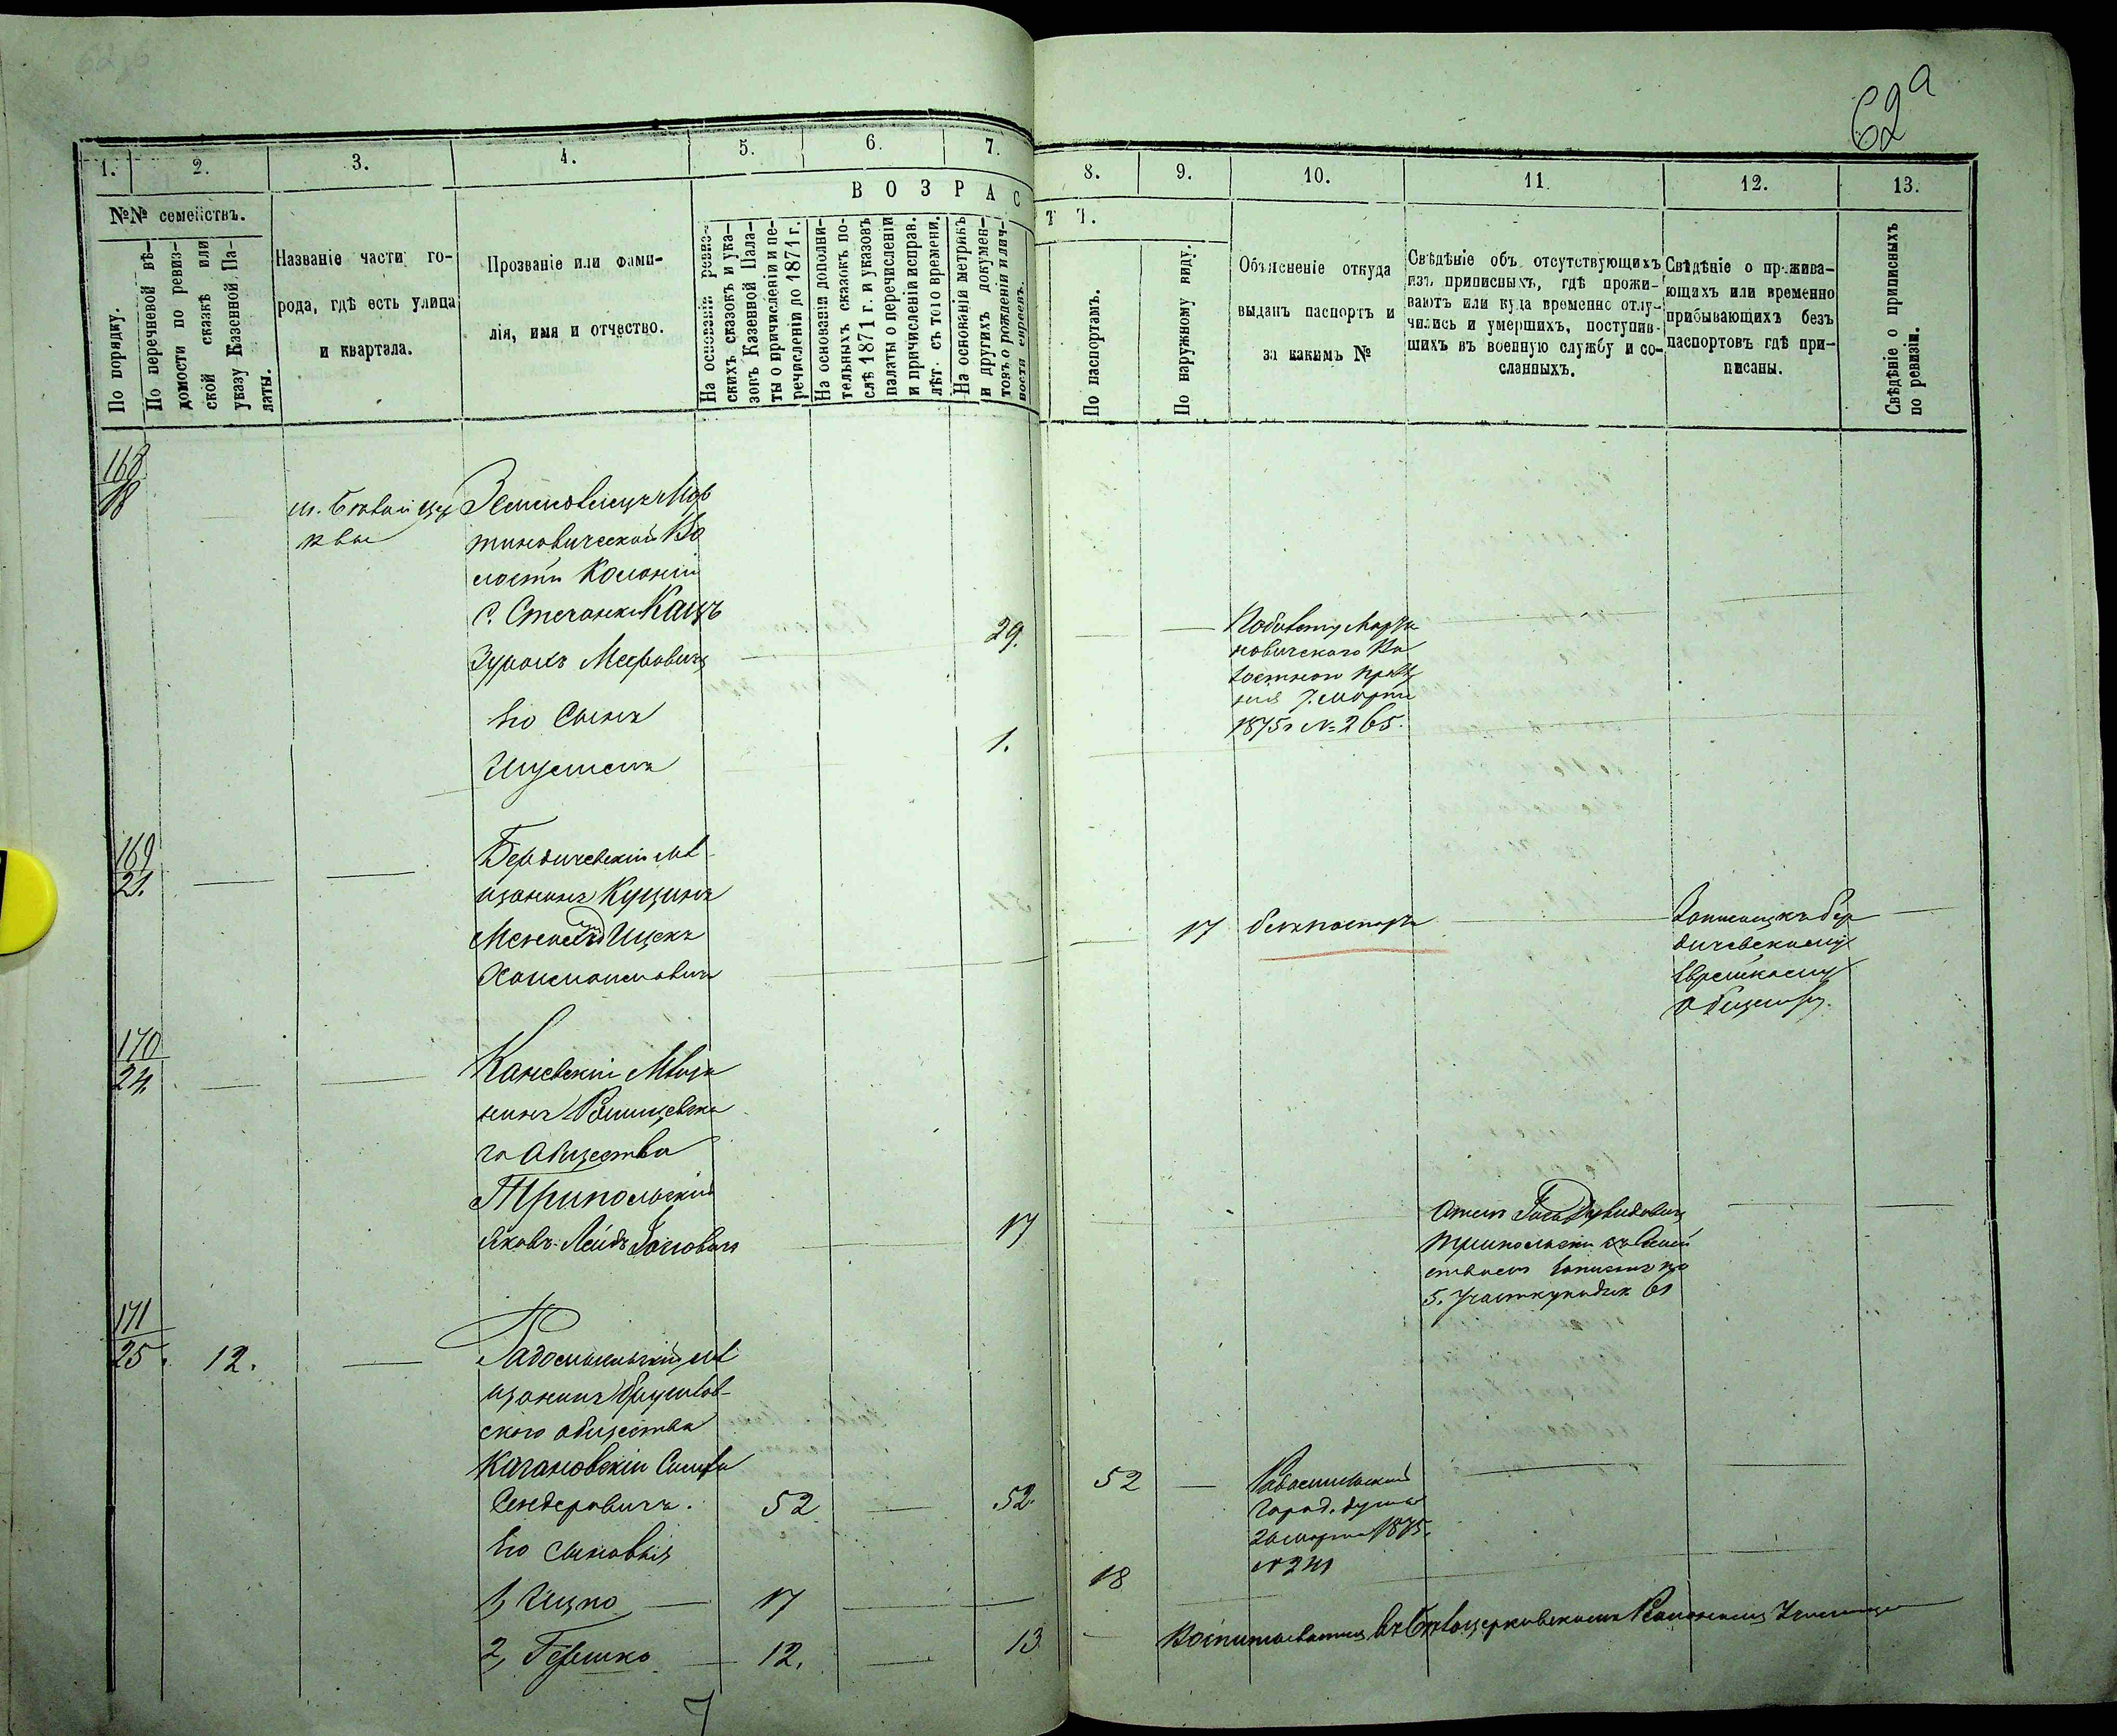 62а
1.
2.
3.
4.
5.
6.
7.
8.
9.
10.
11.
12.
13.
№№ семействъ.
По порядку.
По перечневой вѣ-
домости по ревиз-
ской сказкѣ или
указу Казенной Па-
латы.
Названіе части го-
рода, гдѣ есть улица
и квартала.
Прозваніе или фами-
лія, имя и отчество.
ВОЗРАСТЪ.
На основаніи ревиз-
скихъ сказокъ и ука-
зовъ Казенной Пала-
ты о причисленіи и пе-
речисленіи до 1871 г.
На основаніи дополни-
тельныхъ сказокъ по-
слѣ 1871 г. и указовъ
палаты о перечисленіи
и причисленіи исправ.
лѣт. съ того времени.
На основаніи метрикъ
и другихъ докумен-
товъ о рожденіи и лич-
ности евреевъ.
По паспортамъ.
По наружному виду.
Объясненіе откуда
выданъ паспортъ и
за какимъ №
Свѣдѣніе объ отсутствующихъ
изъ приписныхъ, гдѣ прожи-
ваютъ или куда временно отлу-
чились и умершихъ, поступив-
шихъ въ военную службу и со-
сланныхъ.
Свѣдѣніе о прожива-
ющихъ или временно
прибывающихъ безъ
паспортовъ гдѣ при-
писаны.
Свѣдѣніе о приписныхъ
по ревизіи.
168
18
м. Бѣлой Цер
квы
Земмовлецъ
тиновической Во
лости Колоніи
с. Степанки Кацъ
Мееровичъ
29.
новичского Во
лостного Прав
7. марта
1875 г № 265.
Его Сынъ
1.
169
21.
Бердичевскій мѣ
щанинъ Куцинъ
Ицекъ
17
безъ паспорта
Записанъ къ Бер
дичевскому
Еврейскому
Обществу.
170
24.
Каневскій Мѣща
нинъ
го Общества
Трипольскій
Яковъ-Лейбъ
17
Отецъ Давидовичъ
Трипольскій съ Семей
ствомъ записанъ по
5. Участку подъ № 61
171
25.
12.
Радомысльскій мѣ
щанинъ Брусилов-
ского общества
Кагановскій Симха
Сендеровичъ.
52
52.
52
Радомысльской
Город. Думы
26 марта 1875.
№ 241
Его сыновья
1, Ицко
17
18
2, Гершко
12.
13
Воспитывается въ Бѣлоцерковскомъ